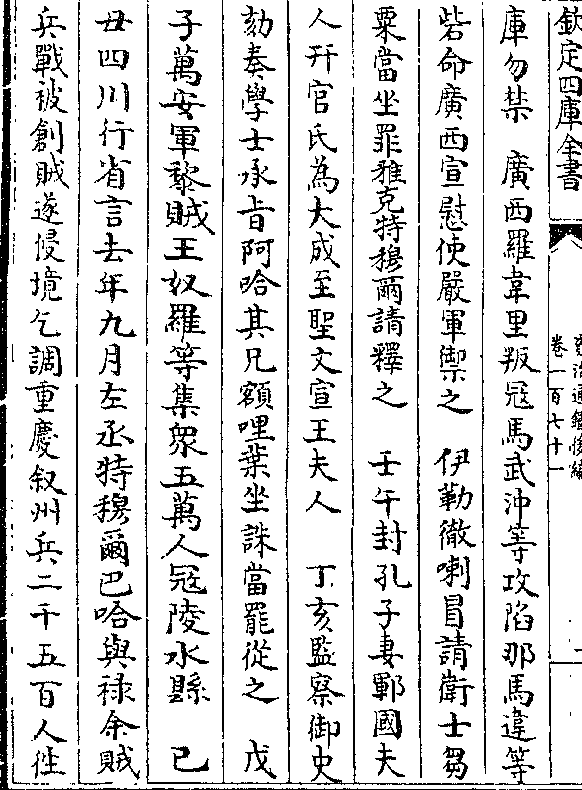 欽定四庫全書
資治通鑑後編
卷一百七十一
庫勿禁　廣西羅韋里叛冦馬武沖等攻陷那馬違等
砦命廣西宣慰使嚴軍禦之　伊勒徹喇冒請衛士芻
粟當坐罪雅克特穆爾請釋之　壬午封孔子妻鄆國夫
人幵官氏為大成至聖文宣王夫人　丁亥監察御史
劾奏學士承旨阿哈其兄額哩葉坐誅當罷從之　戊
子萬安軍黎賊王奴羅等集衆五萬人冦陵水縣　己
丑四川行省言去年九月左丞特穆爾巴哈與祿余賊
兵戰被創賊遂侵境乞調重慶叙州兵二千五百人往